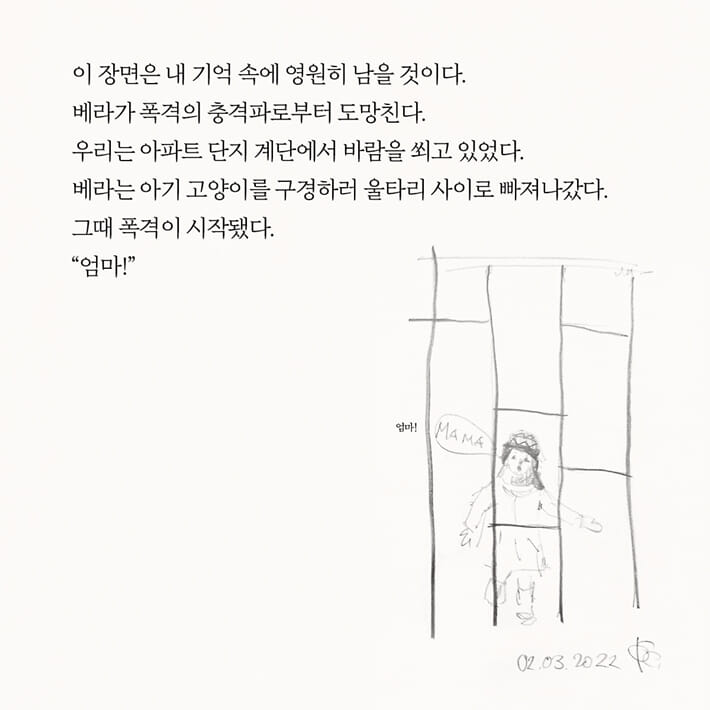 이 장면은 내 기억 속에 영원히 남을 것이다.
베라가 폭격의 충격파로부터 도망친다.
우리는 아파트 단지 계단에서 바람을 쐬고 있었다.
베라는 아기 고양이를 구경하러 울타리 사이로 빠져나갔다.
그때 폭격이 시작됐다.
“엄마!”
엄마!
MAMA
02.03.2022